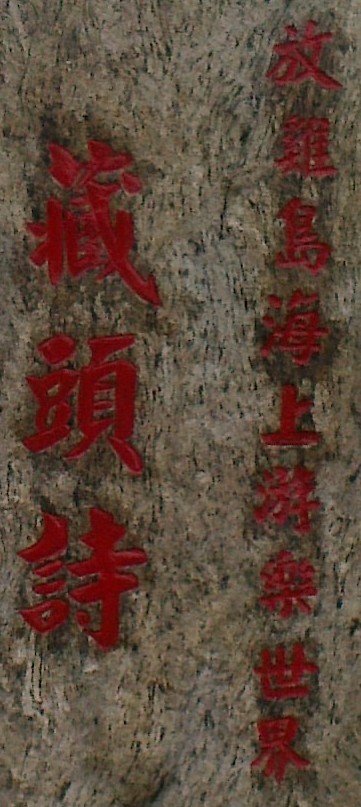 放雞島海上游樂世界
藏頭詩